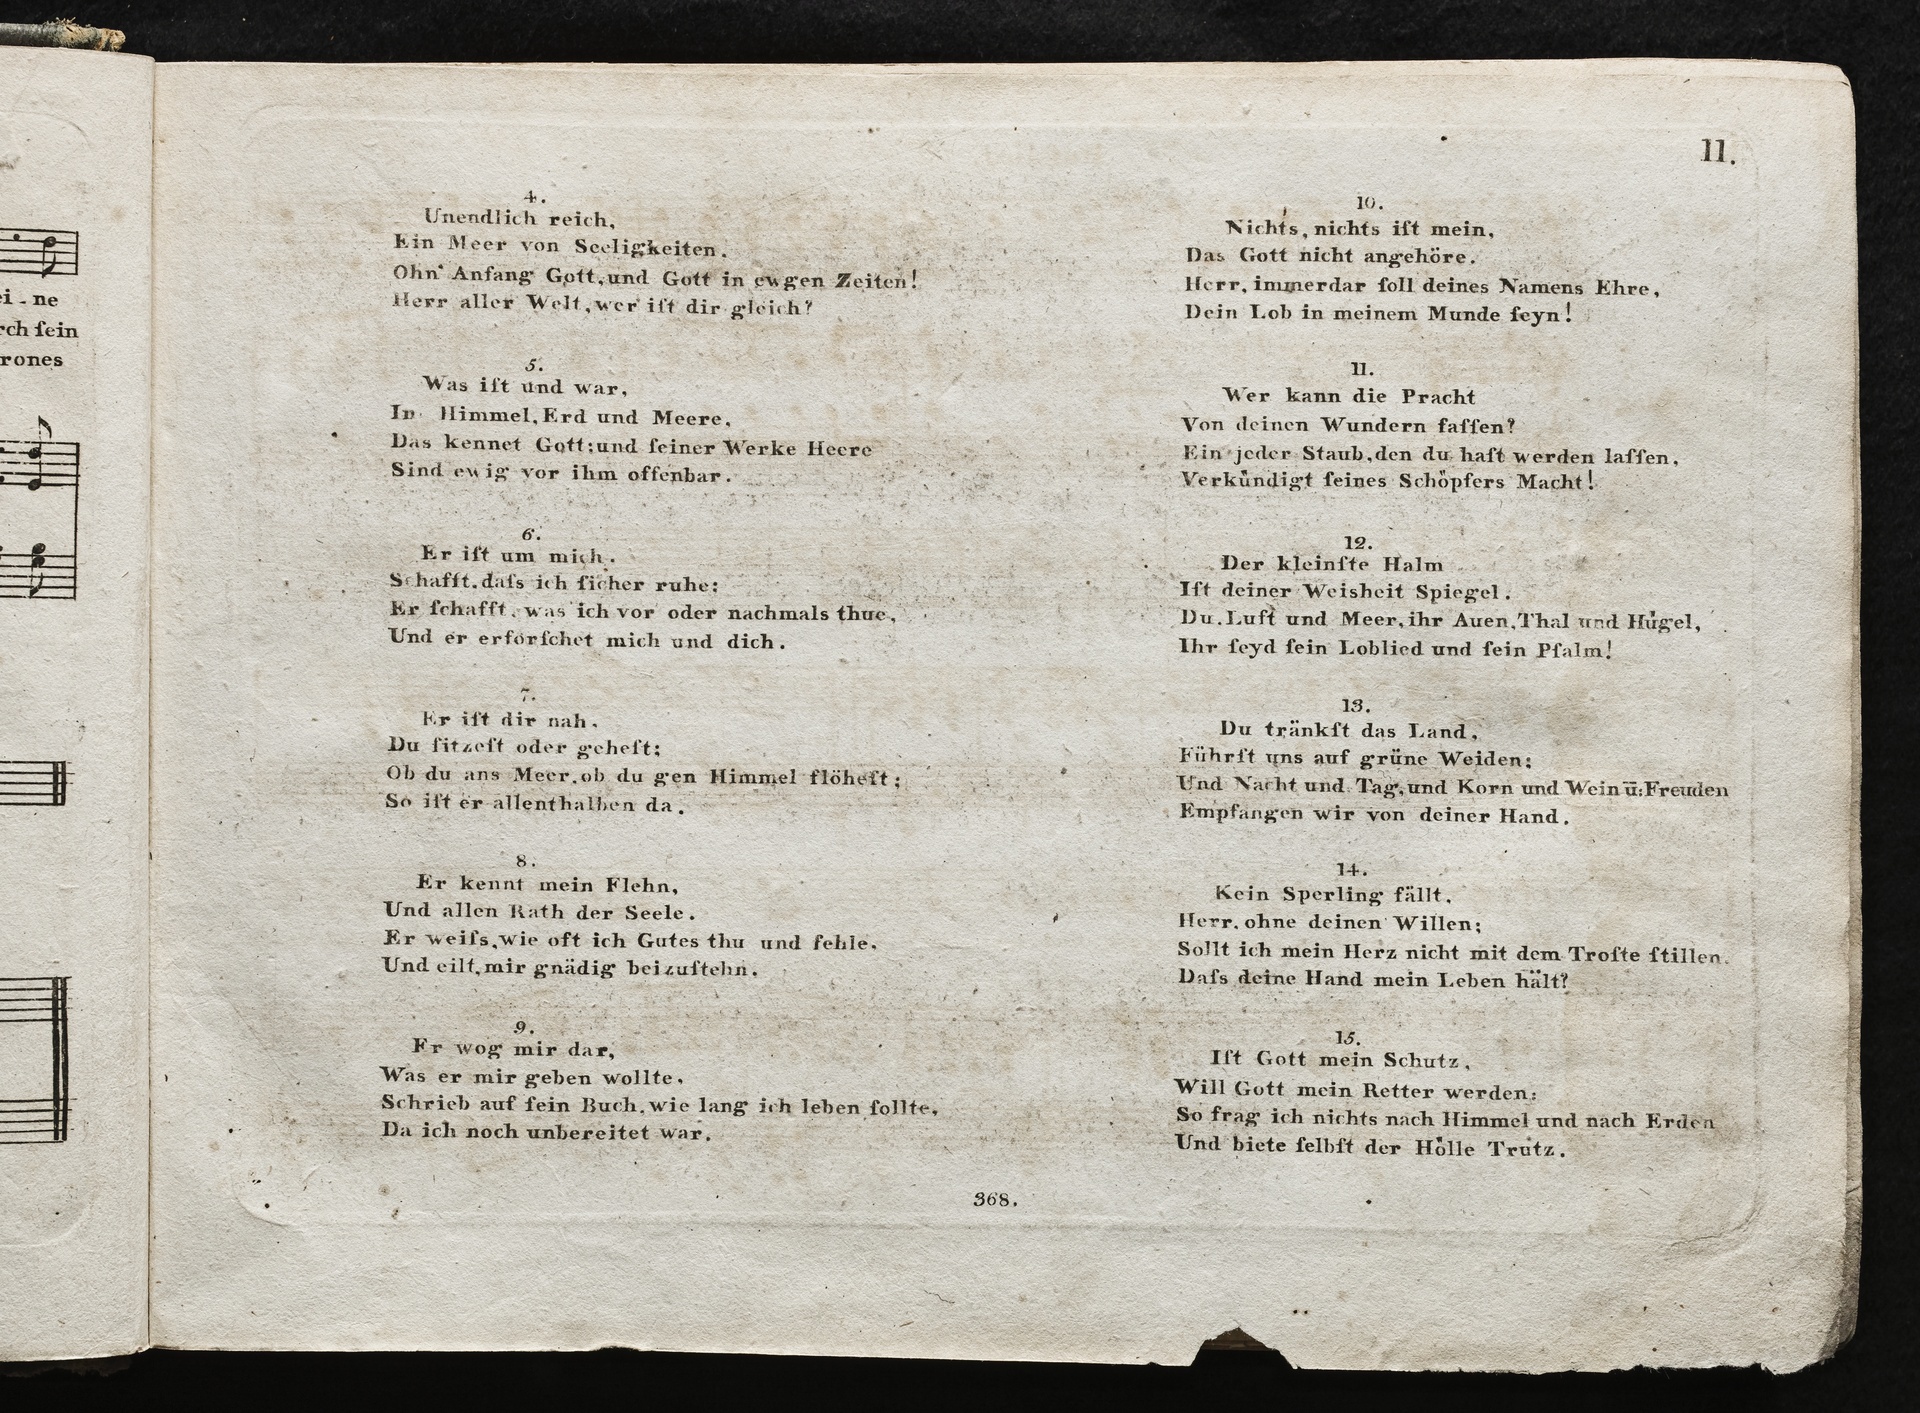 ei-ne
rch ſein
rones
11.
4.
Unendlich reich,
Ein Meer von Seeligkeiten.
Ohn' Anfang Gott, und Gott in ewgen Zeiten!
Herr aller Welt, wer iſt dir gleich?
5.
Was iſt und war,
In Himmel, Erd und Meere,
Das kennet Gott; und ſeiner Werke Heere
Sind ewig vor ihm offenbar.
6.
Er iſt um mich.
Schafft, daſs ich ſicher ruhe;
Er ſchafft, was ich vor oder nachmals thue,
Und er erforſchet mich und dich.
7.
Er iſt dir nah,
Du ſitzeſt oder geheſt;
Ob du ans Meer, ob du gen Himmel flöheſt;
So iſt er allenthalben da.
8.
Er kennt mein Flehn,
Und allen Rath der Seele.
Er weiſs, wie oft ich Gutes thu und fehle,
Und eilt, mir gnädig beizuſtehn.
9.
Er wog mir dar,
Was er mir geben wollte,
Schrieb auf ſein Buch, wie lang ich leben ſollte,
Da ich noch unbereitet war.
10.
Nichts, nichts iſt mein,
Das Gott nicht angehöre.
Herr, immerdar ſoll deines Namens Ehre,
Dein Lob in meinem Munde ſeyn!
11.
Wer kann die Pracht
Von deinen Wundern faſſen?
Ein jeder Staub, den du haſt werden laſſen,
Verkündigt ſeines Schöpfers Macht!
12.
Der kleinſte Halm
Iſt deiner Weisheit Spiegel.
Du, Luft und Meer, ihr Auen, Thal und Hügel,
Ihr ſeyd ſein Loblied und ſein Pſalm!
13.
Du tränkſt das Land,
Führſt uns auf grüne Weiden;
Und Nacht und Tag, und Korn und Wein ū: Freuden
Empfangen wir von deiner Hand.
14.
Kein Sperling fällt,
Herr, ohne deinen Willen;
Sollt ich mein Herz nicht mit dem Troſte ſtillen,
Daſs deine Hand mein Leben hält?
15.
Iſt Gott mein Schutz,
Will Gott mein Retter werden;
So frag ich nichts nach Himmel und nach Erden
Und biete ſelbſt der Hölle Trutz.
368.